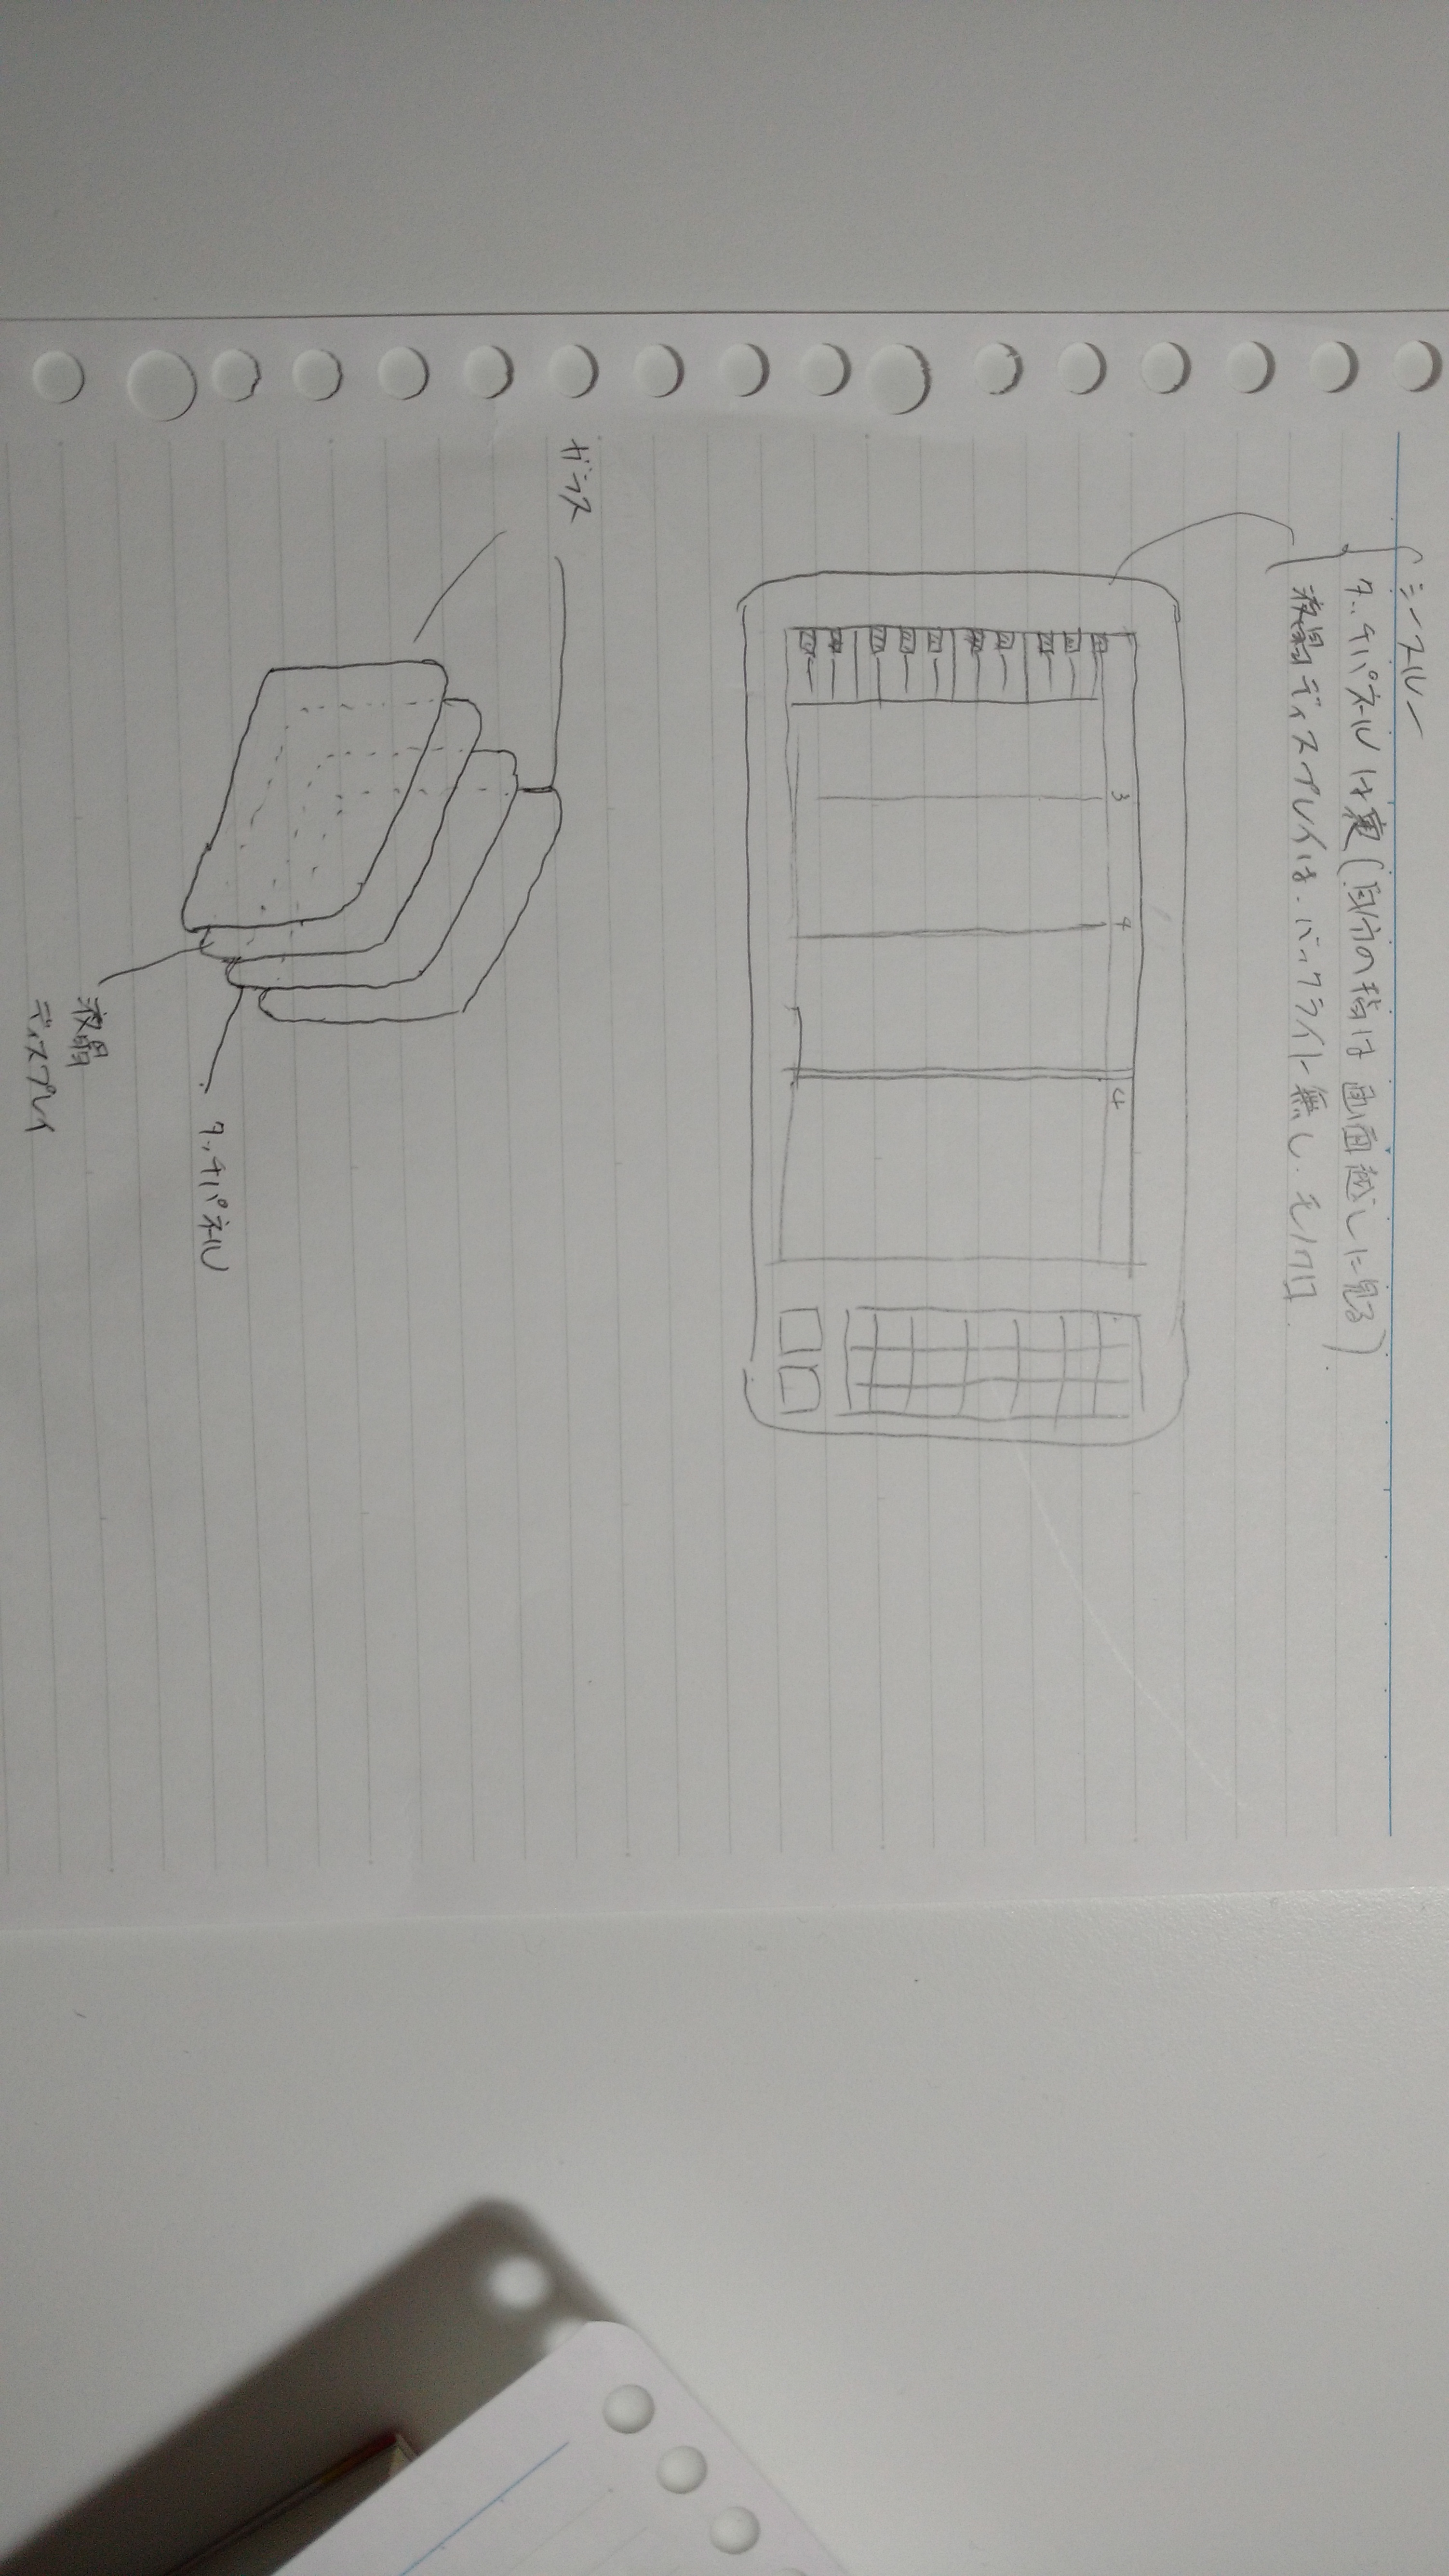 シースルー
タッチパネルは裏(自分の指は画面越しに見る)
液晶ディスプレイは、バックライト無し、モノクロ
3
4
4
ガラス
タッチパネル
液晶
ディスプレイ